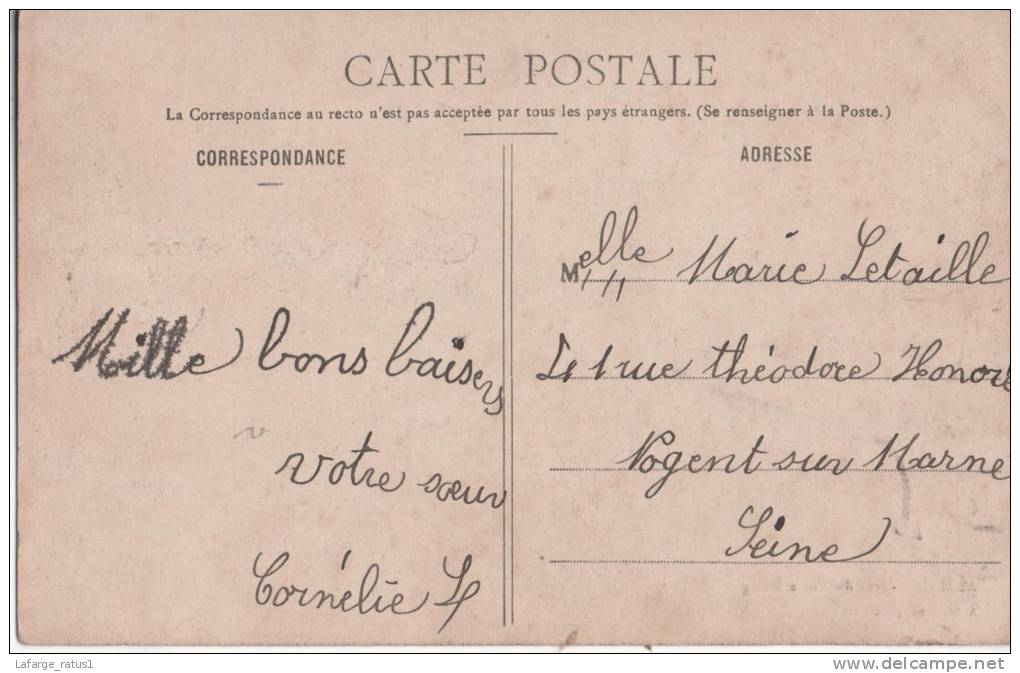 CARTE POSTALE
La Correspondance au recto n'est pas acceptée par tous les pays étrangers. (Se renseigner à la Poste.)
CORRESPONDANCE
Mille bons baisers
votre sœur
Cornélie L
ADRESSE
Melle Marie Letaille
41 rue théodore Honoré
Nogent sur Marne
Seine
Lafarge_ratus1
www.delcampe.net